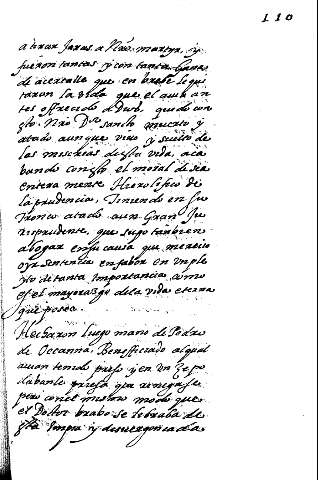 110
a tirar Jaras a Nro. martyr, y
fueron tantas y con tanta Gana
de acertalle que en brebe le qui
taron la vida que el auia an
tes ofrecido a Dios. quedo con
esto Nro Dr. sancto muerto y
atado aunque viuo y suelto de
las miserias desta vida, aca
bando con esto el moral de ser
entera mente Hieroglifico de
la prudencia, Teniendo en su
Tronco atado a un Gran Ju
risprudente, que supo tambien
abogar en su causa que merecio
oyr sentencia en fabor en un ple
yto de tanta importancia como
es el mayorazgo de la vida eterna
que posea.
Hecharon luego mano de Pedro
de Oceanna, Beneficiado al qual
auian tenido preso y en un zepo
dabanle priesa que renegase
pero con el mismo modo que
el Doctor brabo se libraba de
esta impia y desuergonçada